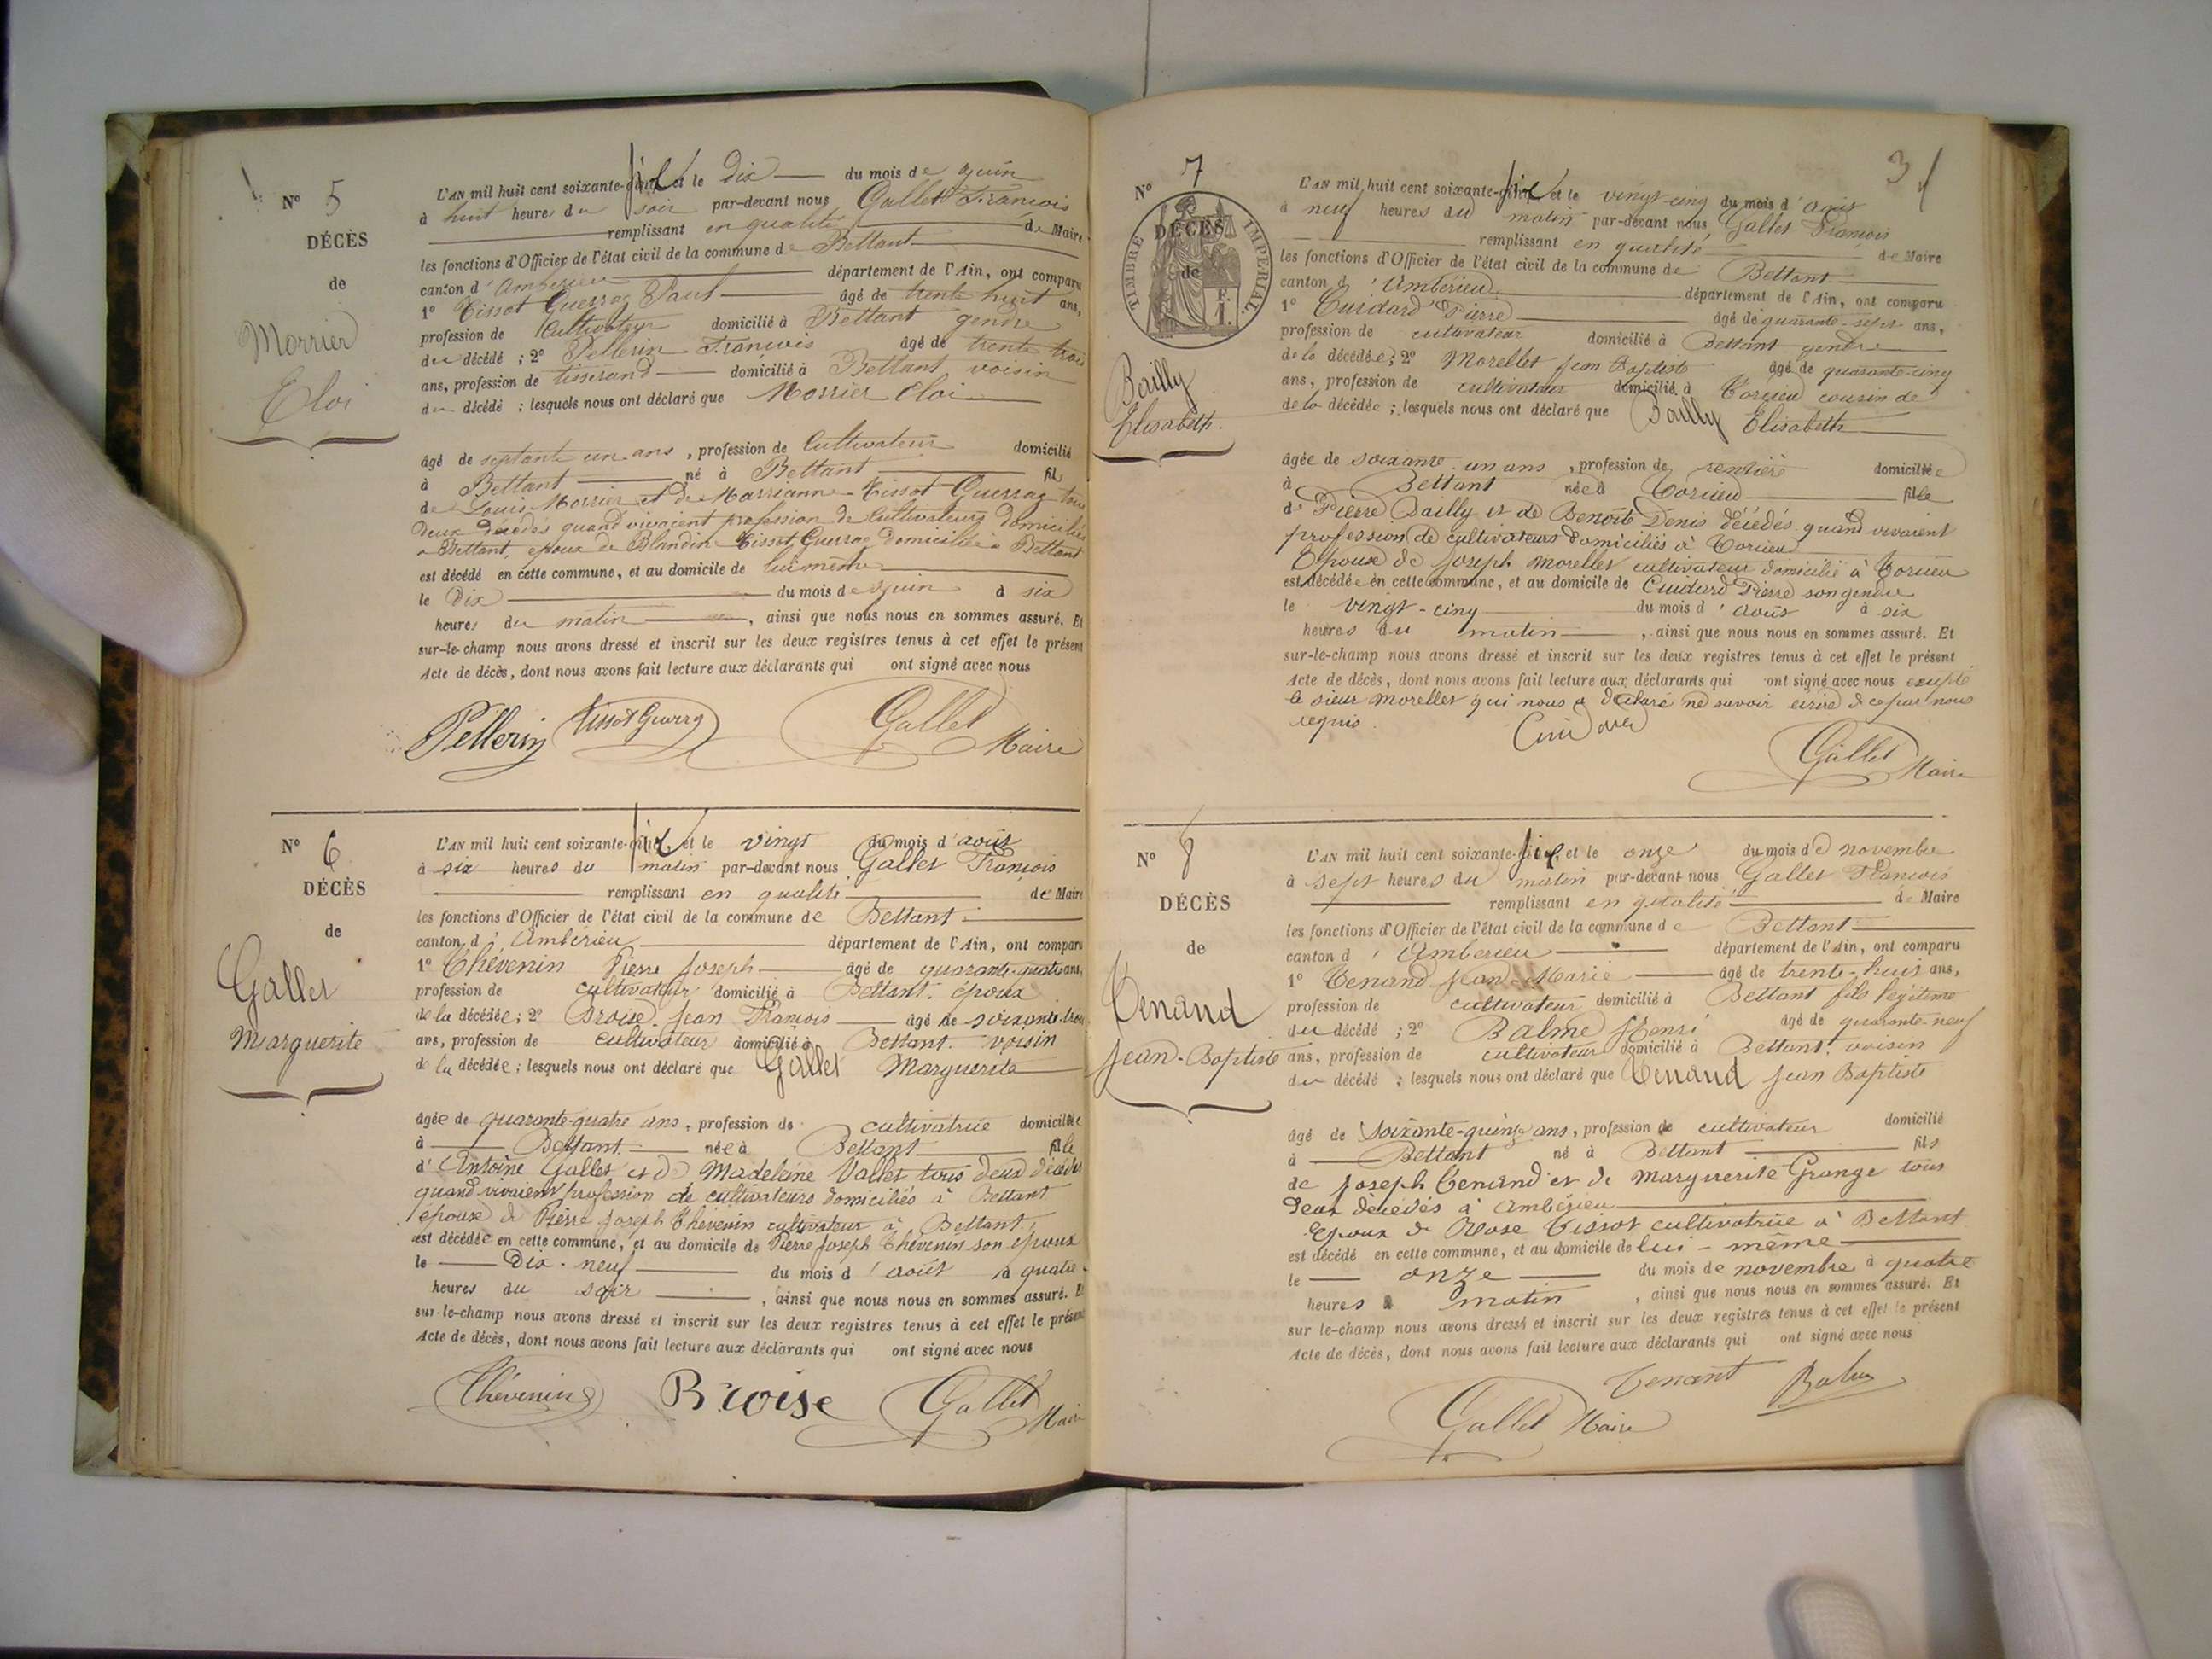 N° 5
DÉCÈS
de
Morrier
Eloi
L'AN mil huit cent soixante-six et le dix du mois de juin
à huit heures du soir par-devant nous Gallet François
remplissant en qualité de Maire
les fonctions d'Officier de l'état civil de la commune de Bettant
canton d'Ambérieu département de l'Ain, ont comparu
1° Tissot Guerraz Paul âgé de trente huit ans,
profession de Cultivateur domicilié à Bettant gendre
du décédé ; 2° Pellerin François âgé de trente trois
ans, profession de tisserand domicilié à Bettant voisin
du décédé ; lesquels nous ont déclaré que Morrier Eloi
âgé de septante un ans, profession de Cultivateur domicilié
à Bettant né à Bettant fils
de Louis Morrier et de Marrianne Tissot Guerraz tous
deux décédés quand vivaient profession de Cultivateurs domiciliés
a Bettant, epoux de Blandine Tissot Guerraz domiciliée a Bettant
est décédé en cette commune, et au domicile de lui même
le Dix du mois de juin à six
heures du matin, ainsi que nous nous en sommes assuré. Et
sur-le-champ nous avons dressé et inscrit sur les deux registres tenus à cet effet le présent
Acte de décès, dont nous avons fait lecture aux déclarants qui ont signé avec nous
Pellerin Tissot Guerraz Gallet Maire
N° 6
DÉCÈS
de
Gallet
Marguerite
L'AN mil huit cent soixante-six et le vingt du mois d'août
à six heures du matin par-devant nous Gallet François
remplissant en qualité de Maire
les fonctions d'Officier de l'état civil de la commune de Bettant
canton d'Ambérieu département de l'Ain, ont comparu
1° Thévenin Pierre Joseph âgé de quarante-quatre ans,
profession de cultivateur domicilié à Bettant époux
de la décédée ; 2° Broise Jean François âgé de soixante-trois
ans, profession de cultivateur domicilié à Bettant voisin
de la décédée ; lesquels nous ont déclaré que Gallet Marguerite
âgée de quarante-quatre ans, profession de cultivatrice domiciliée
à Bettant née à Bettant fille
d'Antoine Gallet et de Madeleine Vallet tous deux décédés
quand vivaient profession de cultivateurs domiciliés à Bettant
épouse de Pierre Joseph Thévenin cultivateur à Bettant,
est décédée en cette commune, et au domicile de Pierre Joseph Thévenin son époux
le Dix-neuf du mois d'août à quatre
heures du soir, ainsi que nous nous en sommes assuré. Et
sur-le-champ nous avons dressé et inscrit sur les deux registres tenus à cet effet le présent
Acte de décès, dont nous avons fait lecture aux déclarants qui ont signé avec nous
Thévenin Broise Gallet Maire
3
N° 7
TIMBRE IMPÉRIAL
1 F.
DÉCÈS
de
Bailly
Elisabeth.
L'AN mil huit cent soixante-six et le vingt-cinq du mois d'août
à neuf heures du matin par-devant nous Gallet François
remplissant en qualité de Maire
les fonctions d'Officier de l'état civil de la commune de Bettant
canton d'Ambérieu département de l'Ain, ont comparu
1° Cuidard Pierre âgé de quarante-sept ans,
profession de cultivateur domicilié à Bettant gendre
de la décédée ; 2° Morellet Jean Baptiste âgé de quarante-cinq
ans, profession de cultivateur domicilié à Torcieu cousin de
de la décédée ; lesquels nous ont déclaré que Bailly Elisabeth
âgée de soixante un ans, profession de rentière domiciliée
à Bettant née à Torcieu fille
de Pierre Bailly et de Benoîte Denis décédés quand vivaient
profession de cultivateurs domiciliés à Torcieu
Epouse de Joseph Morellet cultivateur domicilié à Torcieu
est décédée en cette commune, et au domicile de Cuidard Pierre son gendre
le vingt-cinq du mois d'août à six
heures du matin, ainsi que nous nous en sommes assuré. Et
sur-le-champ nous avons dressé et inscrit sur les deux registres tenus à cet effet le présent
Acte de décès, dont nous avons fait lecture aux déclarants qui ont signé avec nous excepté
le sieur Morellet qui nous a déclaré ne savoir écrire de ce par nous
requis.
Cuidard
Gallet Maire
N° 8
DÉCÈS
de
Tenand
Jean-Baptiste
L'AN mil huit cent soixante-six et le onze du mois de novembre
à sept heures du matin par-devant nous Gallet François
remplissant en qualité de Maire
les fonctions d'Officier de l'état civil de la commune de Bettant
canton d'Ambérieu département de l'Ain, ont comparu
1° Tenand Jean-Marie âgé de trente-huit ans,
profession de cultivateur domicilié à Bettant fils légitime
du décédé ; 2° Balme Henri âgé de quarante-neuf
ans, profession de cultivateur domicilié à Bettant. voisin
du décédé ; lesquels nous ont déclaré que Tenand Jean Baptiste
âgé de soixante-quinze ans, profession de cultivateur domicilié
à Bettant né à Bettant fils
de Joseph Tenand et de Marguerite Grange tous
deux décédés à Ambérieu
Epoux de Rose Tissot cultivatrice à Bettant
est décédé en cette commune, et au domicile de lui-même
le onze du mois de novembre à quatre
heures matin, ainsi que nous nous en sommes assuré. Et
sur le-champ nous avons dressé et inscrit sur les deux registres tenus à cet effet le présent
Acte de décès, dont nous avons fait lecture aux déclarants qui ont signé avec nous
Tenant Balme
Gallet Maire